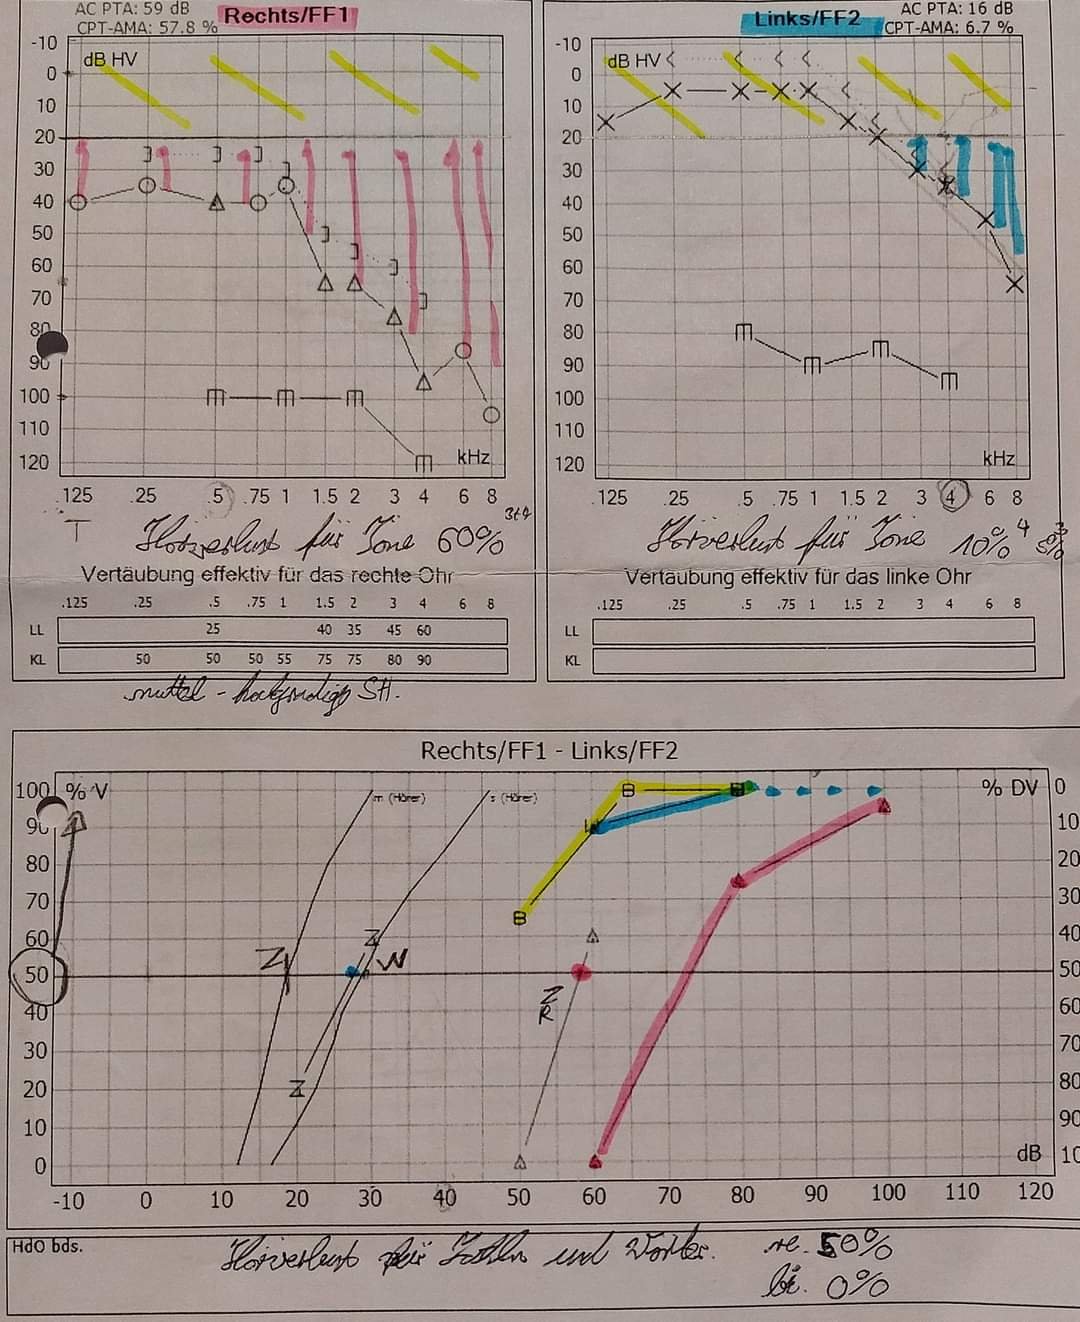 AC PTA: 59 dB
CPT-AMA: 57.8 %
Rechts/FF1
dB HV
-10
0
10
20
30
40
50
60
70
80
90
100
110
120
kHz
.125 .25 .5 .75 1 1.5 2 3 4 6 8
Hörverlust für Töne 60%
Vertäubung effektiv für das rechte Ohr
.125 .25 .5 .75 1 1.5 2 3 4 6 8
LL 25 40 35 45 60
KL 50 50 50 55 75 75 80 90
mittel - hochgradige SH.
Links/FF2
AC PTA: 16 dB
CPT-AMA: 6.7 %
dB HV
-10
0
10
20
30
40
50
60
70
80
90
100
110
120
kHz
.125 .25 .5 .75 1 1.5 2 3 4 6 8
Hörverlust für Töne 10%
Vertäubung effektiv für das linke Ohr
.125 .25 .5 .75 1 1.5 2 3 4 6 8
LL
KL
Rechts/FF1 - Links/FF2
% V
m (Hörer)
s (Hörer)
% DV
100
90
80
70
60
50
40
30
20
10
0
Z
W
Z
R
0
10
20
30
40
50
60
70
80
90
10
dB
-10 0 10 20 30 40 50 60 70 80 90 100 110 120
HdO bds.
Hörverlust für Zahlen und Wörter. re. 50%
li. 0%